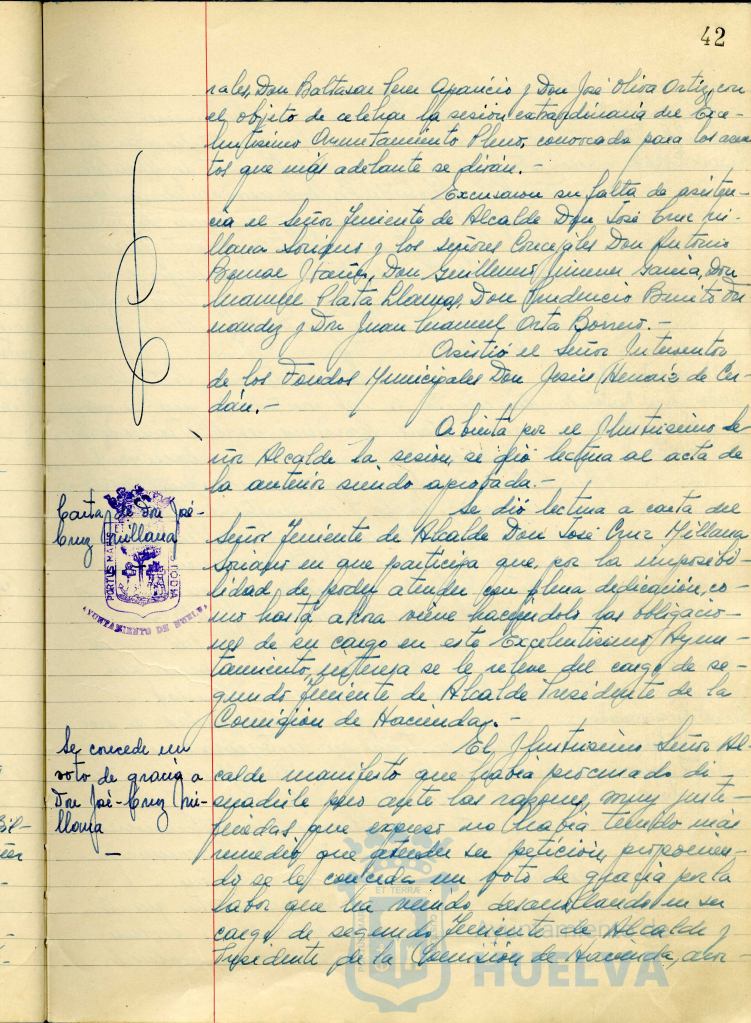 42
rales, Don Baltasar Pérez Aparicio y Don José Oliva Ortiz, con
el objeto de celebrar la sesión extraordinaria del Exce-
lentísimo Ayuntamiento Pleno, convocada para los asun-
tos que más adelante se dirán.-
Excusaron su falta de asisten-
cia el Señor Teniente de Alcalde Don José Cruz Mi-
llana Soriano y los señores Concejales Don Antonio
Bernal Ibáñez, Don Guillermo Jimenez García, Don
Manuel Plata Llamas, Don Prudencio Benito Fer
nandez y Don Juan Manuel Orta Borrero.-
Asistió el Señor Interventor
de los Fondos Municipales Don Jesús Henaiz de Cer-
dán.-
Abierta por el Ilustrísimo Se
ñor Alcalde la sesión, se dió lectura al acta de
la anterior siendo aprobada.-
Carta de Don José-
Cruz Millana
Se dió lectura a carta del
Señor Teniente de Alcalde Don José Cruz Millana
Soriano en que participa que, por la imposibi-
lidad de poder atender con plena dedicación, co-
mo hasta ahora viene haciéndolo las obligacio-
nes de su cargo en este Excelentísimo Ayun-
tamiento, interesa se le releve del cargo de se-
gundo Teniente de Alcalde Presidente de la
Comisión de Hacienda.-
PORTUS MARIS ET
CUSTODIA
AYUNTAMIENTO DE HUELVA
Se concede un
voto de gracia a
Don José-Cruz Mi-
llana
El Ilustrísimo Señor Al-
calde manifestó que había procurado di-
suadirle pero ante las razones, muy justi-
ficadas que expresó no había tenido más
remedio que atender su petición, proponien-
do se le conceda un voto de gracia por la
labor que ha venido desarrollando en su
cargo de segundo Teniente de Alcalde y
Presidente de la Comisión de Hacienda, acor-
ET TERRAE
Ayuntamiento de
HUELVA